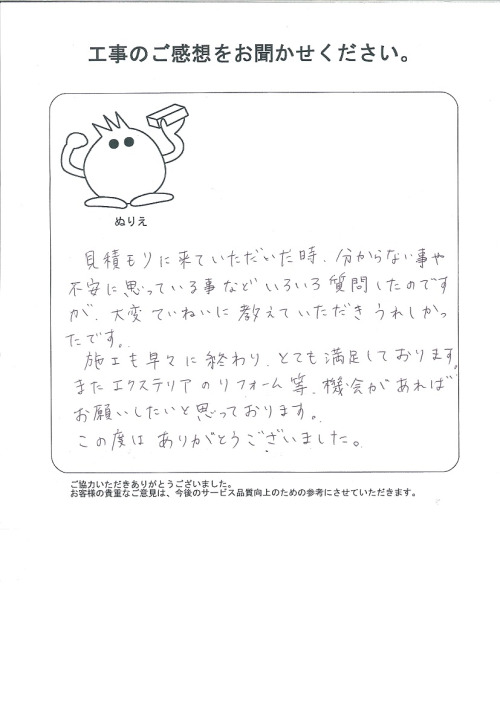 工事のご感想をお聞かせください。
ぬりえ
見積モリに来ていただいた時、分からない事や
不安に思っている事などいろいろ質問したのです
が、大変ていねいに教えていただきうれしかっ
たです。
施工も早々に終わり、とても満足しております。
またエクステリアのリフォーム等、機会があれば
お願いしたいと思っております。
この度はありがとうございました。
ご協力いただきありがとうございました。
お客様の貴重なご意見は、今後のサービス品質向上のための参考にさせていただきます。